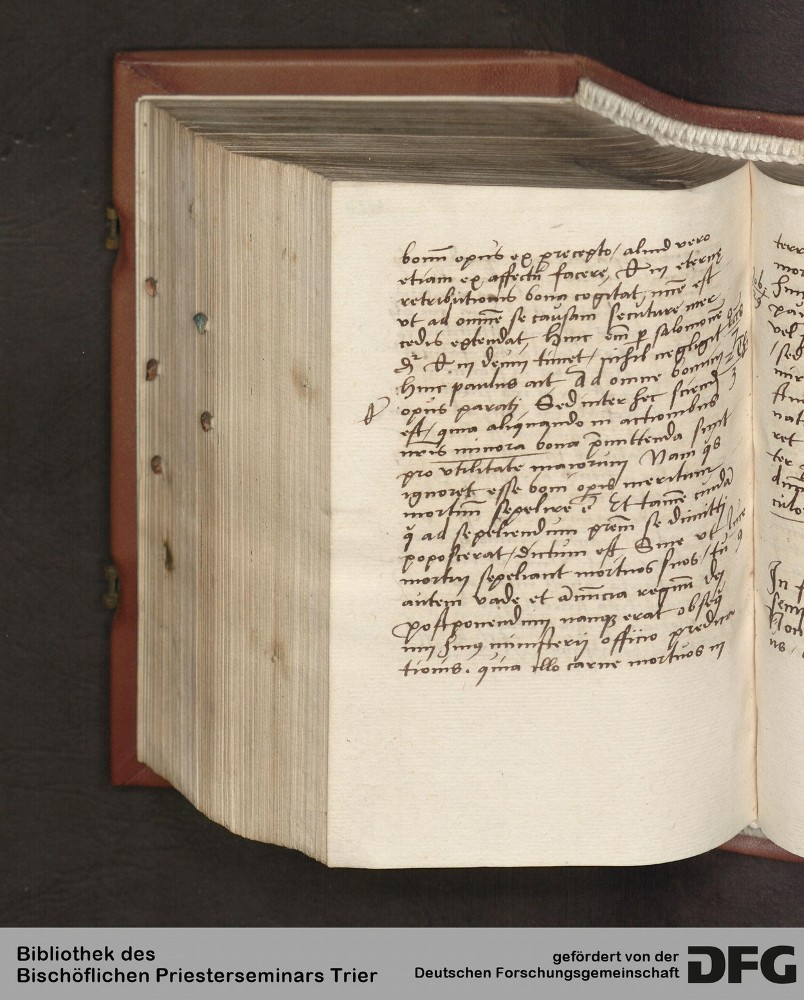 bonū opus ex precepto / aliud vero
etiam ex affectu facere, Et in eterne
retributionis bona cogitat, mens est
vt ad omnē se causam secuture mer
cedis extendat hinc eni p salomonē
dr Et in deum timet / nihil negligit
hinc paulus ait Ad omne bonum
opus parati Sed inter hec sciend
est / quia aliquando in actionibus
nris minora bona p̄mittenda sunt
pro vtilitate maiorum Nam qs
ignoret esse boni opis meritum
mortuū sepelire ē Et tamē cuidā
q ad sepeliendum prem se dimitti
poposcerat / dictum est Sine vt
mortui sepeliant mortuos suos / tu
autem vade et annuncia regnum dei
postponendum namqz erat obsequi
um huius ministerij officio predica
tionis. quia illo carne mortuos in
terr
mor
hui
vel
sed
nat
ret
ter
culo
In
us
Bibliothek des
Bischöflichen Priesterseminars Trier
gefördert von der
Deutschen Forschungsgemeinschaft
DFG